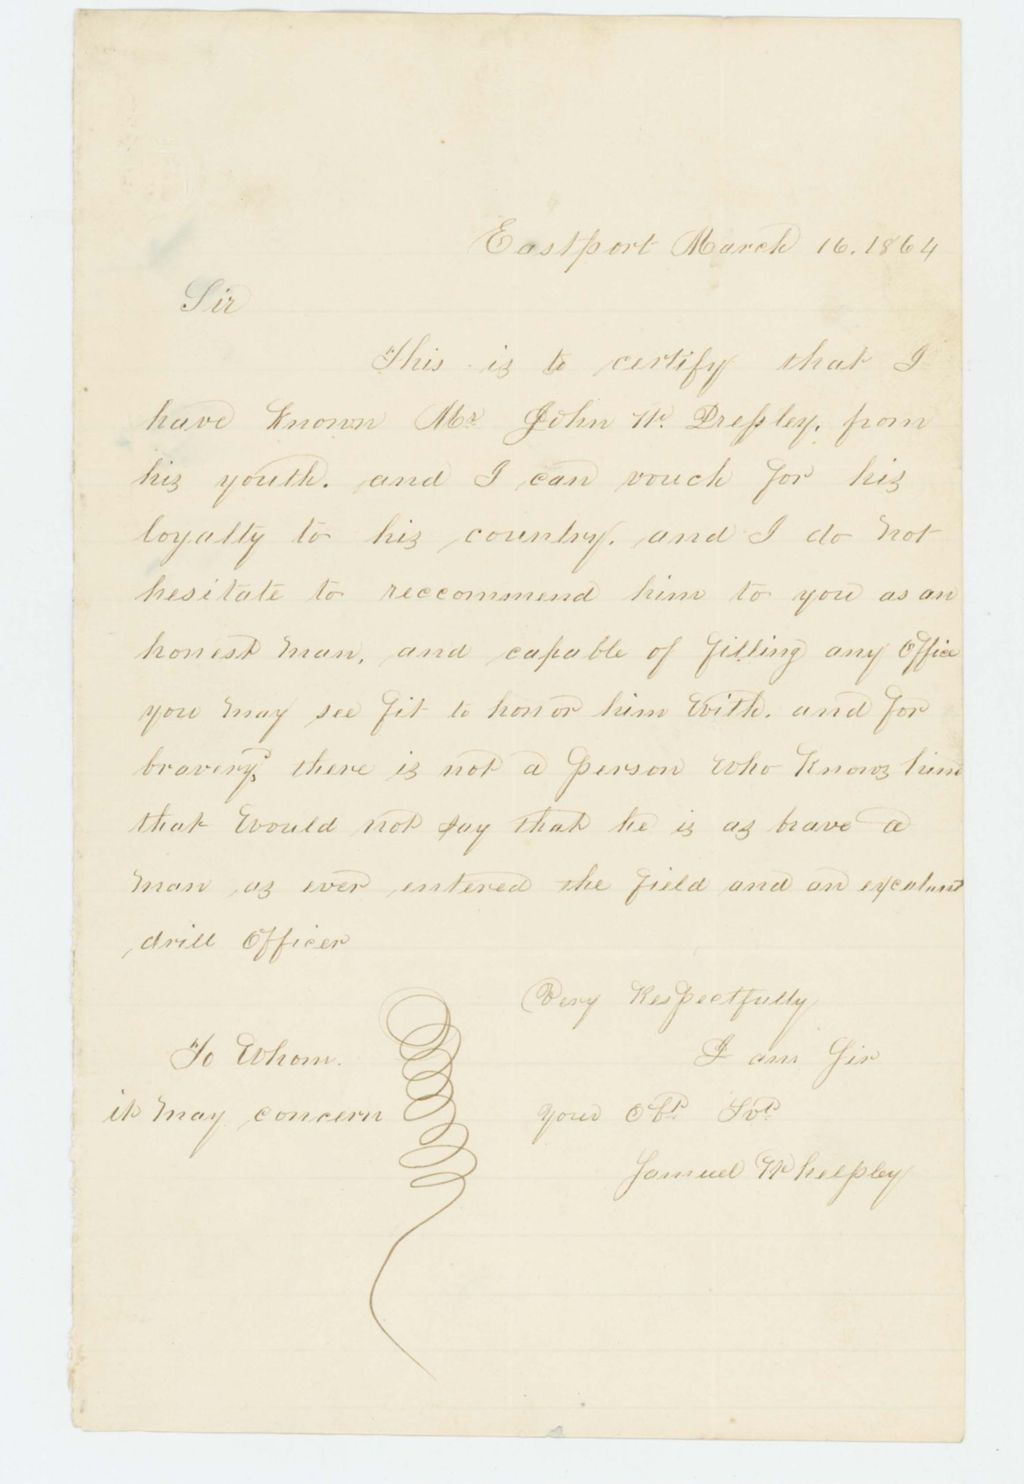 Eastport March 16. 1864
Sir
This is to certify that I
have known Mr John W. Pressley, from
his youth. and I can vouch for his
loyalty to his country. and I do not
hesitate to reccommend him to you as an
honest man, and capable of filling any Office
you may see fit to honor him with. and for
bravery, there is not a person who knows him
that would not say that he is as brave a
man as ever entered the field and an excelant
drill Officer
Very Respectfully
To Whom. I am Sir
it may concern your Obt Svt
Samuel Wheelpley